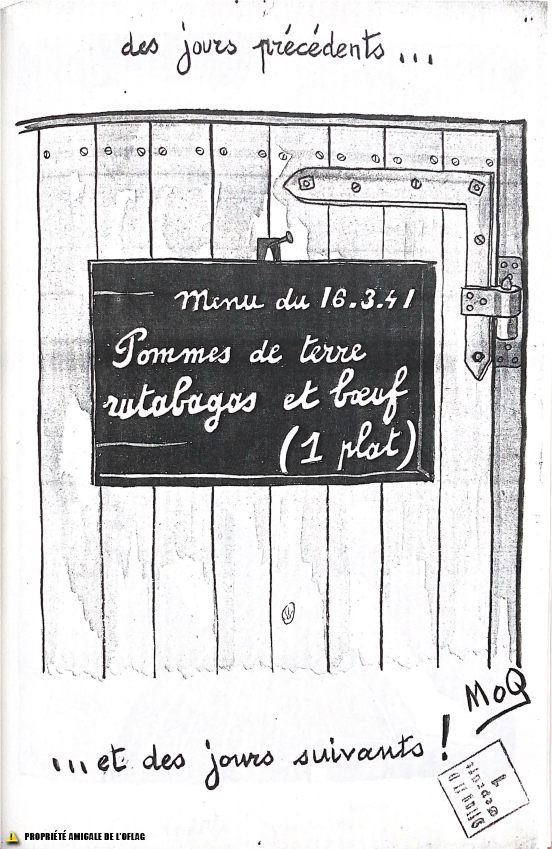 des jours précédents...
Menu du 16.3.41
Pommes de terre
rutabagas et bœuf
(1 plat)
MoQ
...et des jours suivants !
PROPRIÉTÉ AMICALE DE L'OFLAG